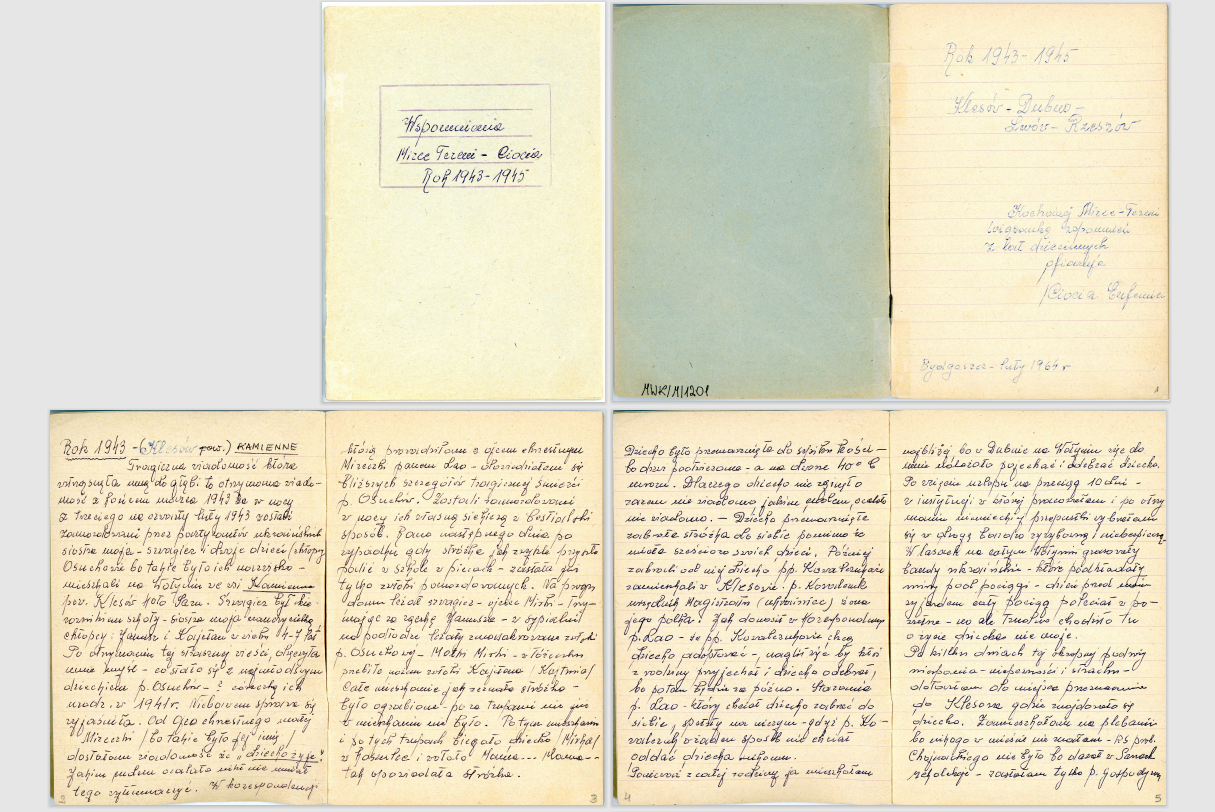 Wspomnienia
Mirce Tereni - Ciocia
Rok 1943-1945
MWK/M/1201
Rok 1943-1945
Klesów - Dubno -
Lwów - Rzeszów
Kochanej Mirce-Tereni
wiązankę wspomnień
z lat dziecinnych
ofiaruje
/Ciocia Eufemia
Bydgoszcz - luty 1964 r
1
Rok 1943 - (Klesów pow.) KAMIENNE
Tragiczna wiadomość która
wstrząsnęła mną do głębi to otrzymana wiado-
mość z końcem marca 1943 że w nocy
z trzeciego na czwarty luty 1943 zostali
zamordowani przez partyzantów ukraińskich
siostra moja - szwagier i dwoje dzieci /chłopcy/
Osuchowie bo takie było ich nazwisko -
mieszkali na Wołyniu we wsi Kamienne
pow. Klesów koło Sarn. Szwagier był kie-
rownikiem szkoły - siostra moja nauczycielką
chłopcy: Janusz i Kajetan w wieku 4-7 lat
Po otrzymaniu tej strasznej wieści, dręczyła
mnie myśl - co stało się z najmłodszym
dzieckiem p. Osuchów - ? córeczką ich
urodz. w 1941 r. Niebawem sprawa się
wyjaśniła. Od Ojca chrzestnego małej
Mireczki /bo takie było jej imię
dostałam wiadomość że "dziecko żyje"
Jakim cudem ocalała nikt nie umiał
tego wytłumaczyć. W korespondencji
2
którą prowadziłam z ojcem chrzestnym
Mireczki panem Lao - dowiedziałam się
bliższych szczegółów tragicznej śmierci
p. Osuchów. Zostali zamordowani
w nocy ich własną siekierą w bestialski
sposób. Rano następnego dnia po
wypadku gdy stróżka jak zwykle przyszła
palić w szkole w piecach - zastała już
tylko zwłoki pomordowanych. Na progu
domu leżał szwagier - ojciec Mirki - trzy-
mając za rączkę Janusza - w sypialni
na podłodze leżały zmasakrowane zwłoki
p. Osuchowej - Matki Mirki - w łóżeczku
przebite nożem zwłoki Kajetana /Kajtusia/
Całe mieszkanie jak zeznała stróżka -
było ograbione - poza trupami nic już
w mieszkaniu nie było. Po tym mieszkaniu
i po tych trupach biegało dziecko /Mirka/
w koszulce i wołało Mama... Mama...
tak opowiadała stróżka.
3
Dziecko było przemarznięte do szpiku kości -
bo drzwi pootwierane - a na dworze 40° C
mrozu. Dlaczego dziecko nie zginęło
razem nie wiadomo jakim cudem ocalało
nie wiadomo. - Dziecko przemarznięte
zabrała stróżka do siebie pomimo że
miała sześcioro swoich dzieci. Później
zabrali od niej dziecko pp. Kowalczukowie
zamieszkali w Klesowie. p. Kowalczuk
urzędnik Magistratu (ukrainiec) żona
jego polka. Jak donosił w korespondencji
p. Lao - że pp. Kowalczukowie chcą
dziecko adoptować -, nagli się by ktoś
z rodziny przyjechał i dziecko odebrał,
bo potem będzie za późno. Starania
p. Lao - który chciał dziecko zabrać do
siebie, spełzły na niczym - gdyż p. Ko-
walczuk w żaden sposób nie chciał
oddać dziecka nikomu.
Ponieważ z całej rodziny ja mieszkałam
4
najbliżej bo w Dubnie na Wołyniu więc do
mnie należało pojechać i odebrać dziecko.
Po wzięciu urlopu na przeciąg 10 dni -
w instytucji w której pracowałam i po otrzy
maniu niemieckiej przepustki wybrałam
się w drogę bardzo ryzykowną i niebezpieczną.
W lasach na całym Wołyniu grasowały
bandy ukraińskie - które podkładały
miny pod pociągi - dzień przed moim
wyjazdem cały pociąg poleciał w po-
wietrze - no ale trudno chodziło tu
o życie dziecka nie moje.
Po kilku dniach tej okropnej podróży
mieszania - niepewności i strachu -
dotarłam do miejsca przeznaczenia
do Klesowa gdzie znajdowało się
dziecko. Zamieszkałam na plebanii
bo nikogo w mieście nie znałam - ks. prob.
Chojnackiego nie było bo
- zastałam tylko p. gospodynię
5